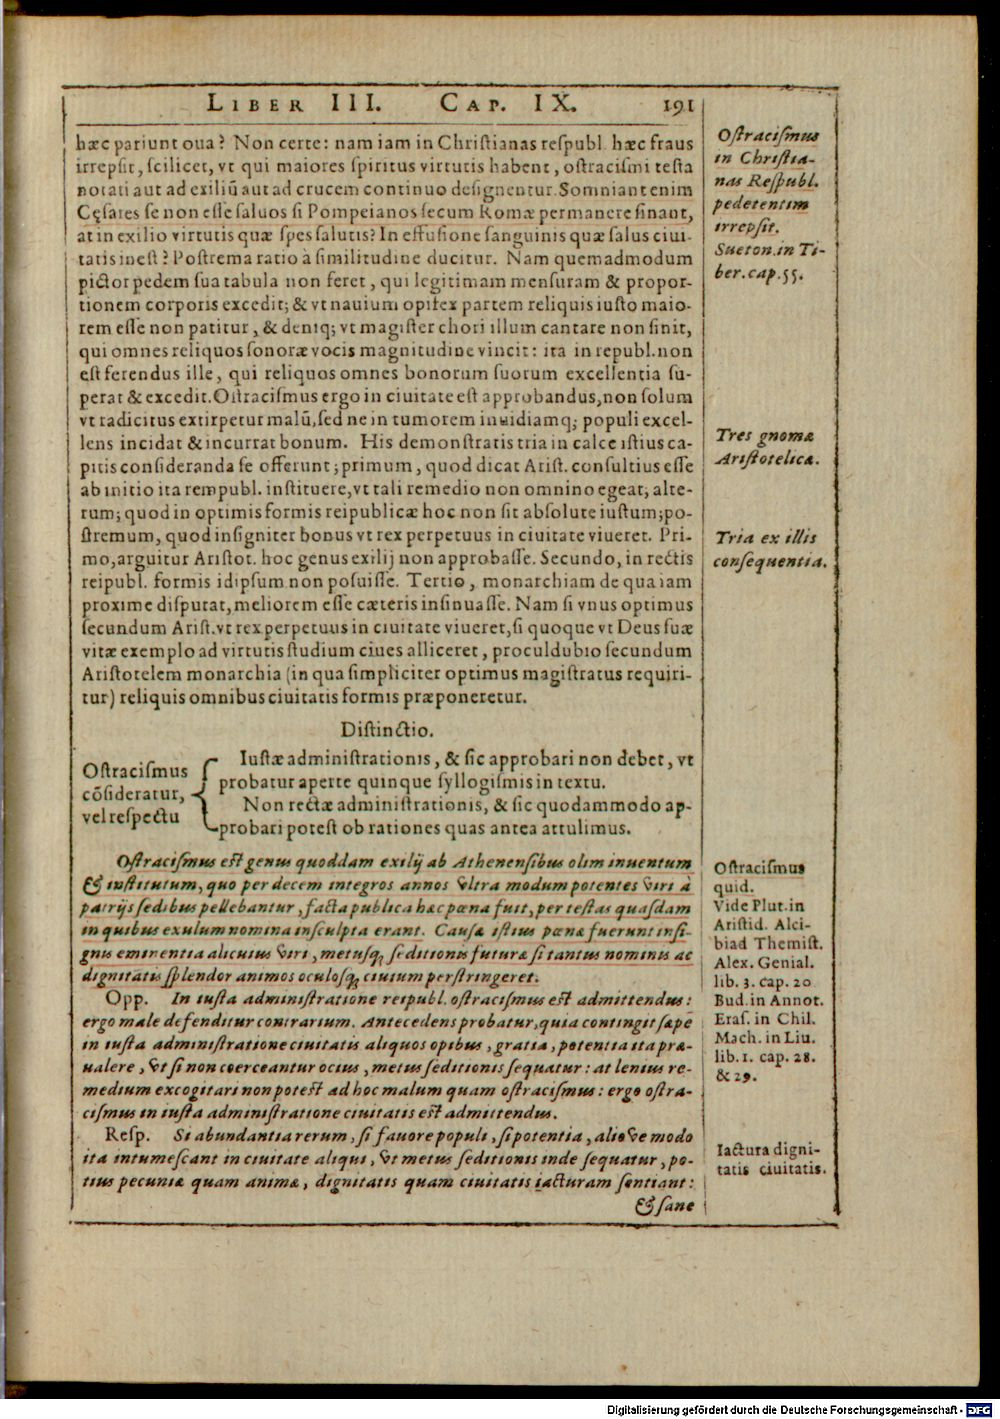 LIBER III. CAP. IX. 191
hæc pariunt oua? Non certe: nam iam in Christianas respubl. hæc fraus
irrepsit, scilicet, vt qui maiores spiritus virtutis habent, ostracismi testa
notati aut ad exiliū aut ad crucem continuo designentur. Somniant enim
Cęsares se non esse saluos si Pompeianos secum Romæ permanere sinant,
at in exilio virtutis quæ spes salutis? In effusione sanguinis quæ salus ciui-
tatis inest? Postrema ratio à similitudine ducitur. Nam quemadmodum
pictor pedem sua tabula non feret, qui legitimam mensuram & propor-
tionem corporis excedit; & vt nauium opifex partem reliquis iusto maio-
rem esse non patitur, & deniq; vt magister chori illum cantare non sinit,
qui omnes reliquos sonoræ vocis magnitudine vincit: ita in republ. non
est ferendus ille, qui reliquos omnes bonorum suorum excellentia su-
perat & excedit. Ostracismus ergo in ciuitate est approbandus, non solum
vt radicitus extirpetur malū, sed ne in tumorem inuidiamq; populi excel-
lens incidat & incurrat bonum. His demonstratis tria in calce istius ca-
pitis consideranda se offerunt; primum, quod dicat Arist. consultius esse
ab initio ita rempubl. instituere, vt tali remedio non omnino egeat; alte-
rum; quod in optimis formis reipublicæ hoc non sit absolute iustum; po-
stremum, quod insigniter bonus vt rex perpetuus in ciuitate viueret. Pri-
mo, arguitur Aristot. hoc genus exilij non approbasse. Secundo, in rectis
reipubl. formis idipsum non posuisse. Tertio, monarchiam de qua iam
proxime disputat, meliorem esse cæteris insinuasse. Nam si vnus optimus
secundum Arist. vt rex perpetuus in ciuitate viueret, si quoque vt Deus suæ
vitæ exemplo ad virtutis studium ciues alliceret, proculdubio secundum
Aristotelem monarchia (in qua simpliciter optimus magistratus requiri-
tur) reliquis omnibus ciuitatis formis præponeretur.
Distinctio.
Ostracismus
cōsideratur,
vel respectu
Iustæ administrationis, & sic approbari non debet, vt
probatur aperte quinque syllogismis in textu.
Non rectæ administrationis, & sic quodammodo ap-
probari potest ob rationes quas antea attulimus.
Ostracismus est genus quoddam exilij ab Atheniensibus olim inuentum
& institutum, quo per decem integros annos vltra modum potentes viri à
patrijs sedibus pellebantur, facta publica hæc pœna fuit, per testas quasdam
in quibus exulum nomina insculpta erant. Causæ istius pœnæ fuerunt insi-
gnis eminentia alicuius viri, metusq; seditionis futuræ si tantus nominis ac
dignitatis splendor animos oculosq; ciuium perstringeret.
Opp. In iusta administratione reipubl. ostracismus est admittendus:
ergo male defenditur contrarium. Antecedens probatur, quia contingit sæpe
in iusta administratione ciuitatis aliquos opibus, gratia, potentia ita præ-
ualere, vt si non coerceantur ocius, metus seditionis sequatur: at lenius re-
medium excogitari non potest ad hoc malum quam ostracismus: ergo ostra-
cismus in iusta administratione ciuitatis est admittendus.
Resp. Si abundantia rerum, si fauore populi, si potentia, alioue modo
ita intumescant in ciuitate aliqui, vt metus seditionis inde sequatur, po-
tius pecuniæ quam animæ, dignitatis quam ciuitatis iacturam sentiant:
& sane
Ostracismus
in Christia-
nas Respubl.
pedetentim
irrepsit.
Sueton. in Ti-
ber. cap. 55.
Tres gnomæ
Aristotelicæ.
Tria ex illis
consequentia.
Ostracismus
quid.
Vide Plut. in
Aristid. Alci-
biad Themist.
Alex. Genial.
lib. 3. cap. 20
Bud. in Annot.
Eras. in Chil.
Mach. in Liu.
lib. 1. cap. 28.
& 29.
Iactura digni-
tatis ciuitatis.
Digitalisierung gefördert durch die Deutsche Forschungsgemeinschaft - DFG